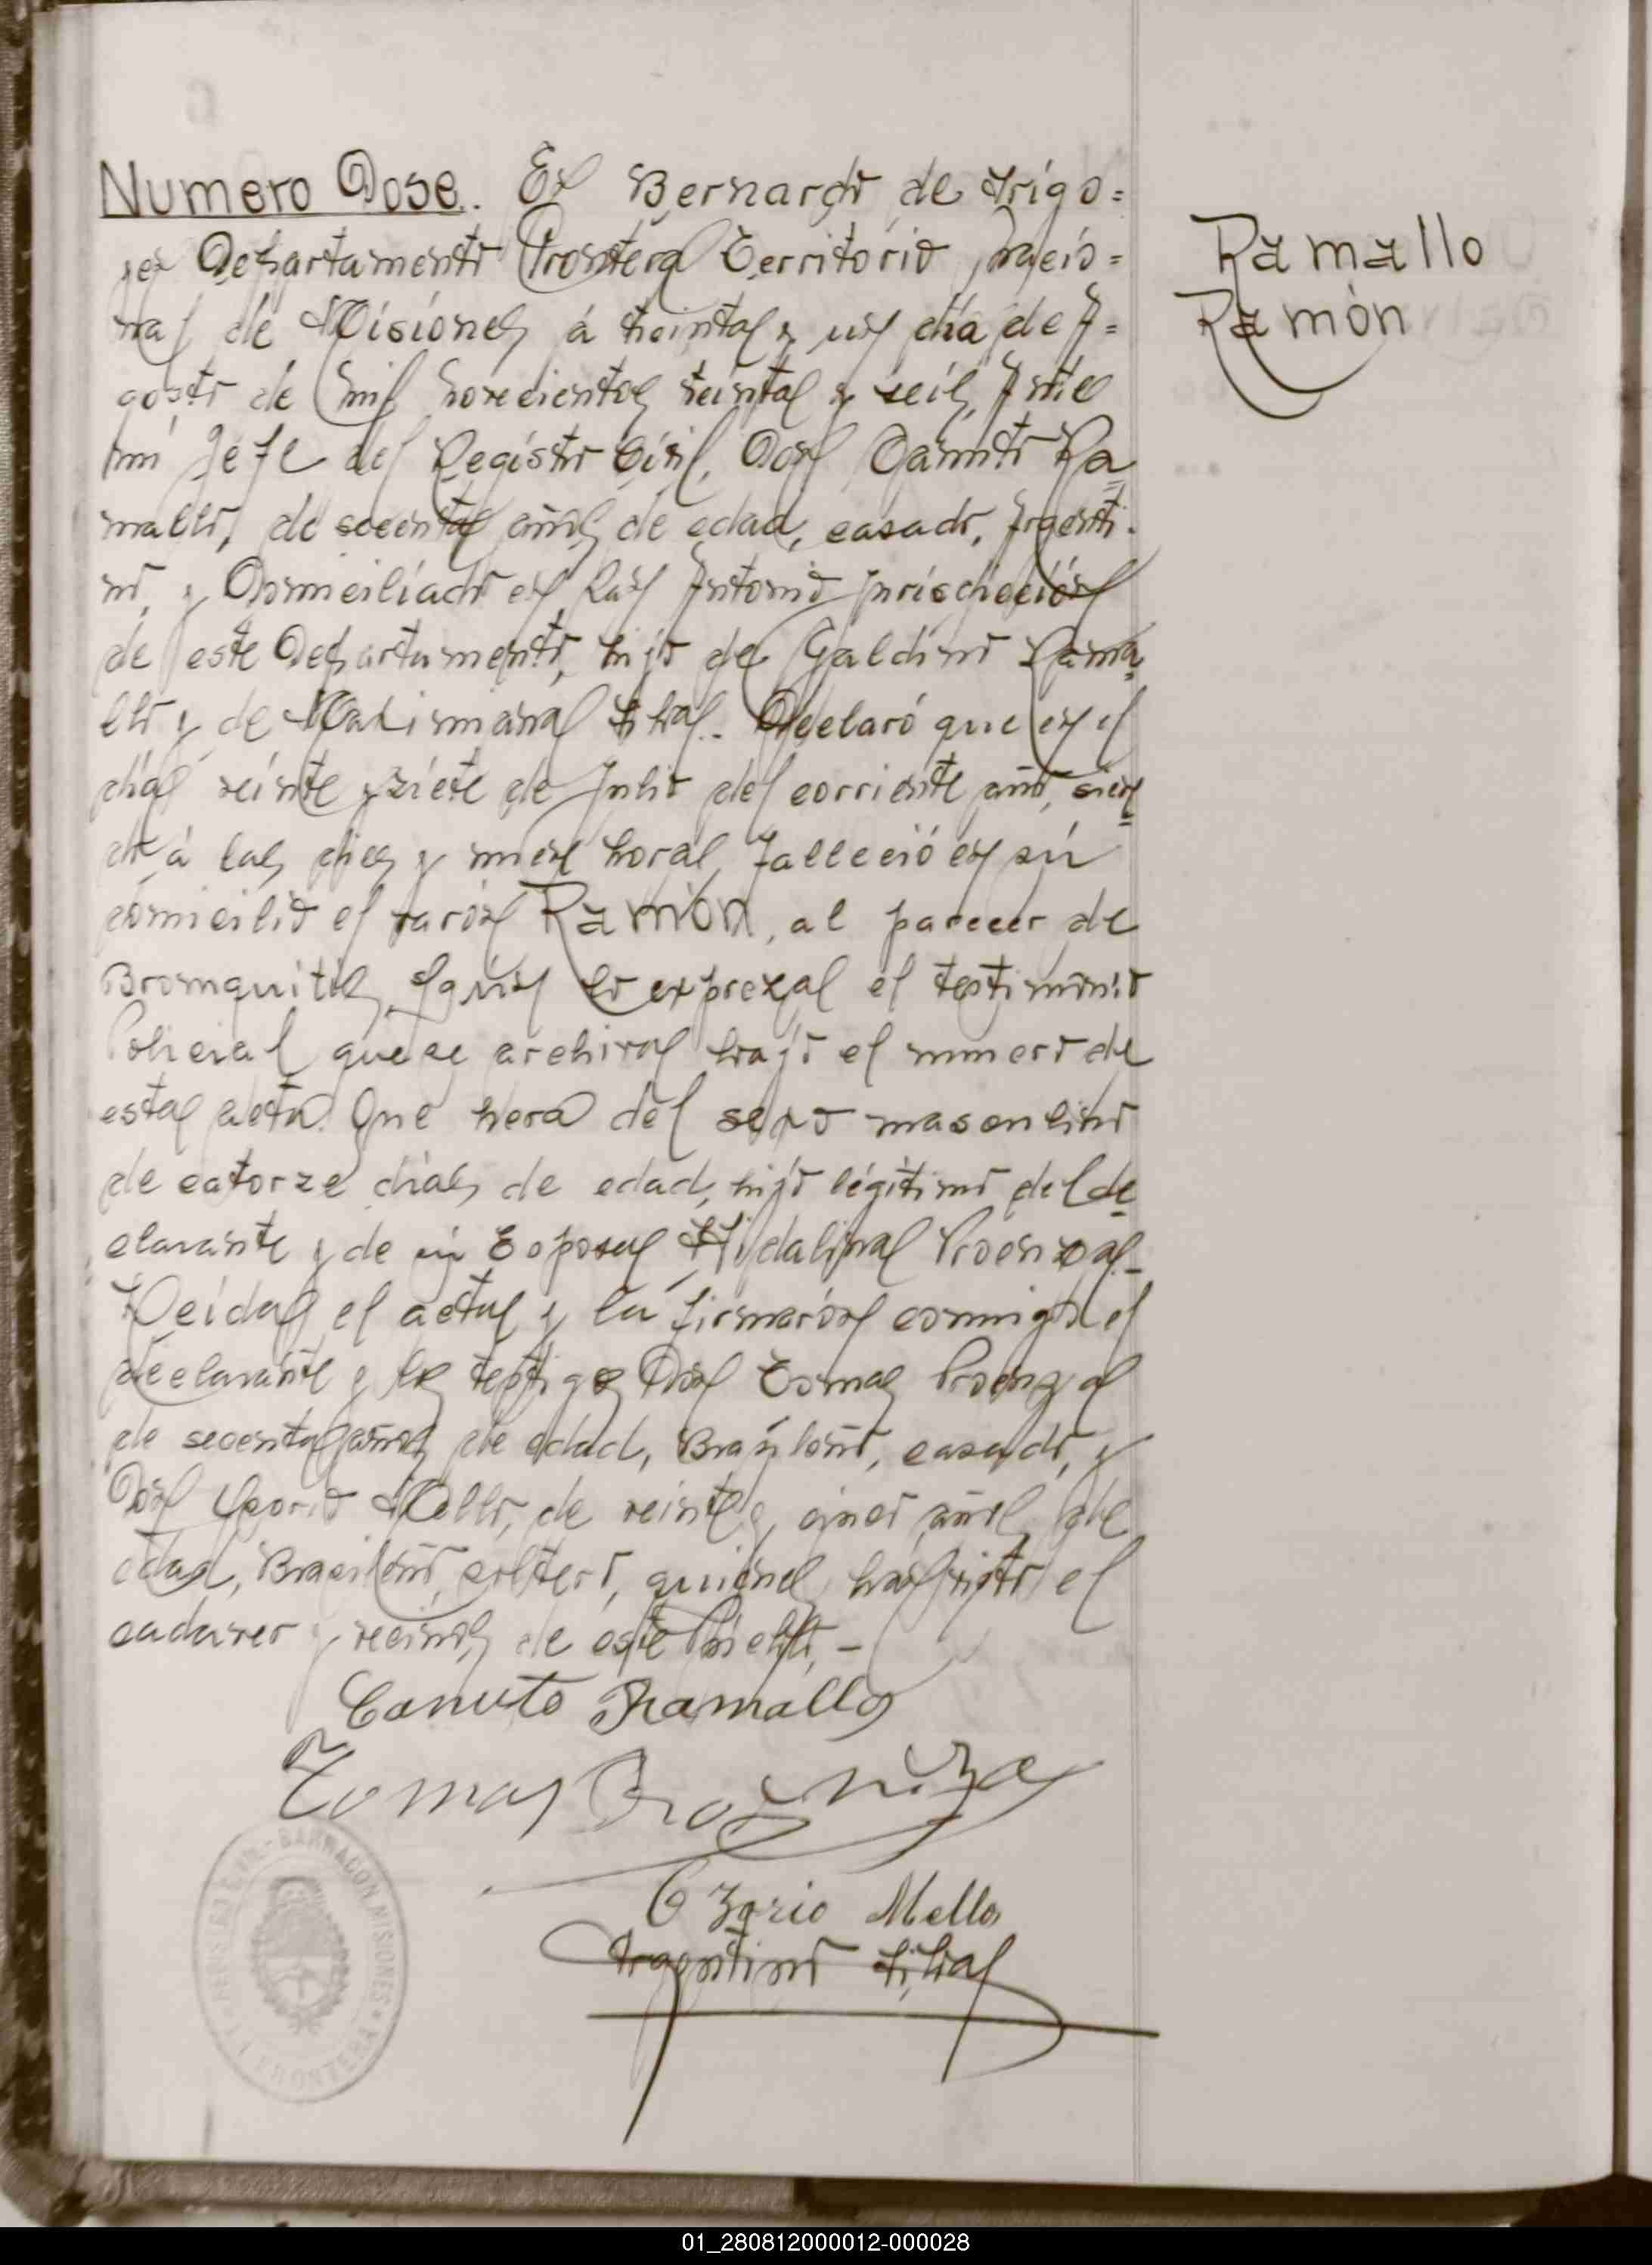 Numero Dose. En Bernardo de Irigo=
yen Departamento Frontera Territorio Nacio=
nal de Misiones á treinta y un día de A=
gosto de mil novecientos treinta y seis, Ante
mi Jefe del Registro Civil, Don Canuto Ra=
mallo, de secenta años de edad, casado, Argenti-
no, y Domiciliado en San Antonio jurisdicción
de este Departamento, hijo de Galdino Rama=
llo y de Maximiana Silva.- Declaró que en el
día veinte y siete de Julio del corriente año, sien=
do á las diez y hora, falleció en sú
domicilio el varón Ramón, al parecer de
Bromquitis, segun lo expreza el testimonio
Policial que se archiva bajo el numero de
esta acta. Que hera del sexo masculino
de catorze días de edad, hijo légitimo del de=
clarante y de su Esposa Proenza.-
Leida el acta y la firmarón conmigo el
declarante y los testigos Don Tomas Proenza
de secenta años de edad, Brasileño, casado, y
Don Mello, de veinte y cinco años de
edad, Brasileño, soltero, quienes han visto el
cadaver y vecinos de este Pueblo.-
Canuto Ramallo
Tomas Proenza
Ozorio Mello
Argentino Silva
Ramallo
Ramón
REGISTRO CIVIL - BARRACON MISIONES - FRONTERA
01_280812000012-000028